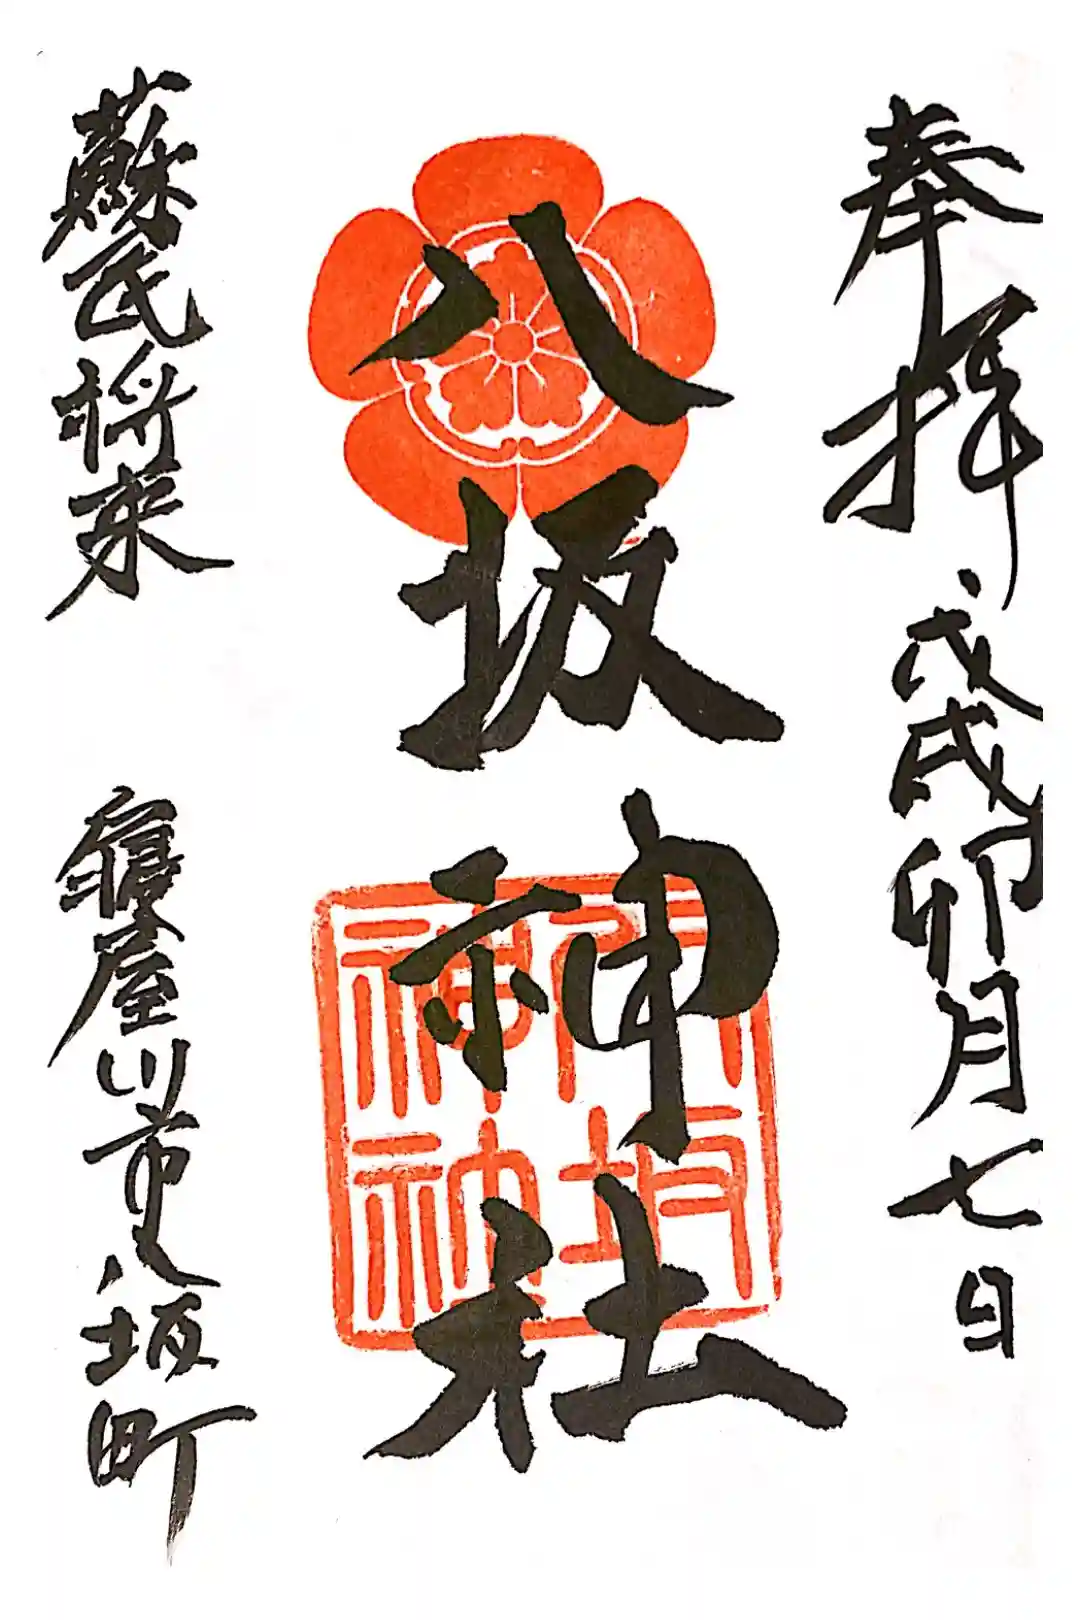 奉拝 戊戌卯月七日
八坂神社
八坂神社
蘇民将来 寝屋川市八坂町